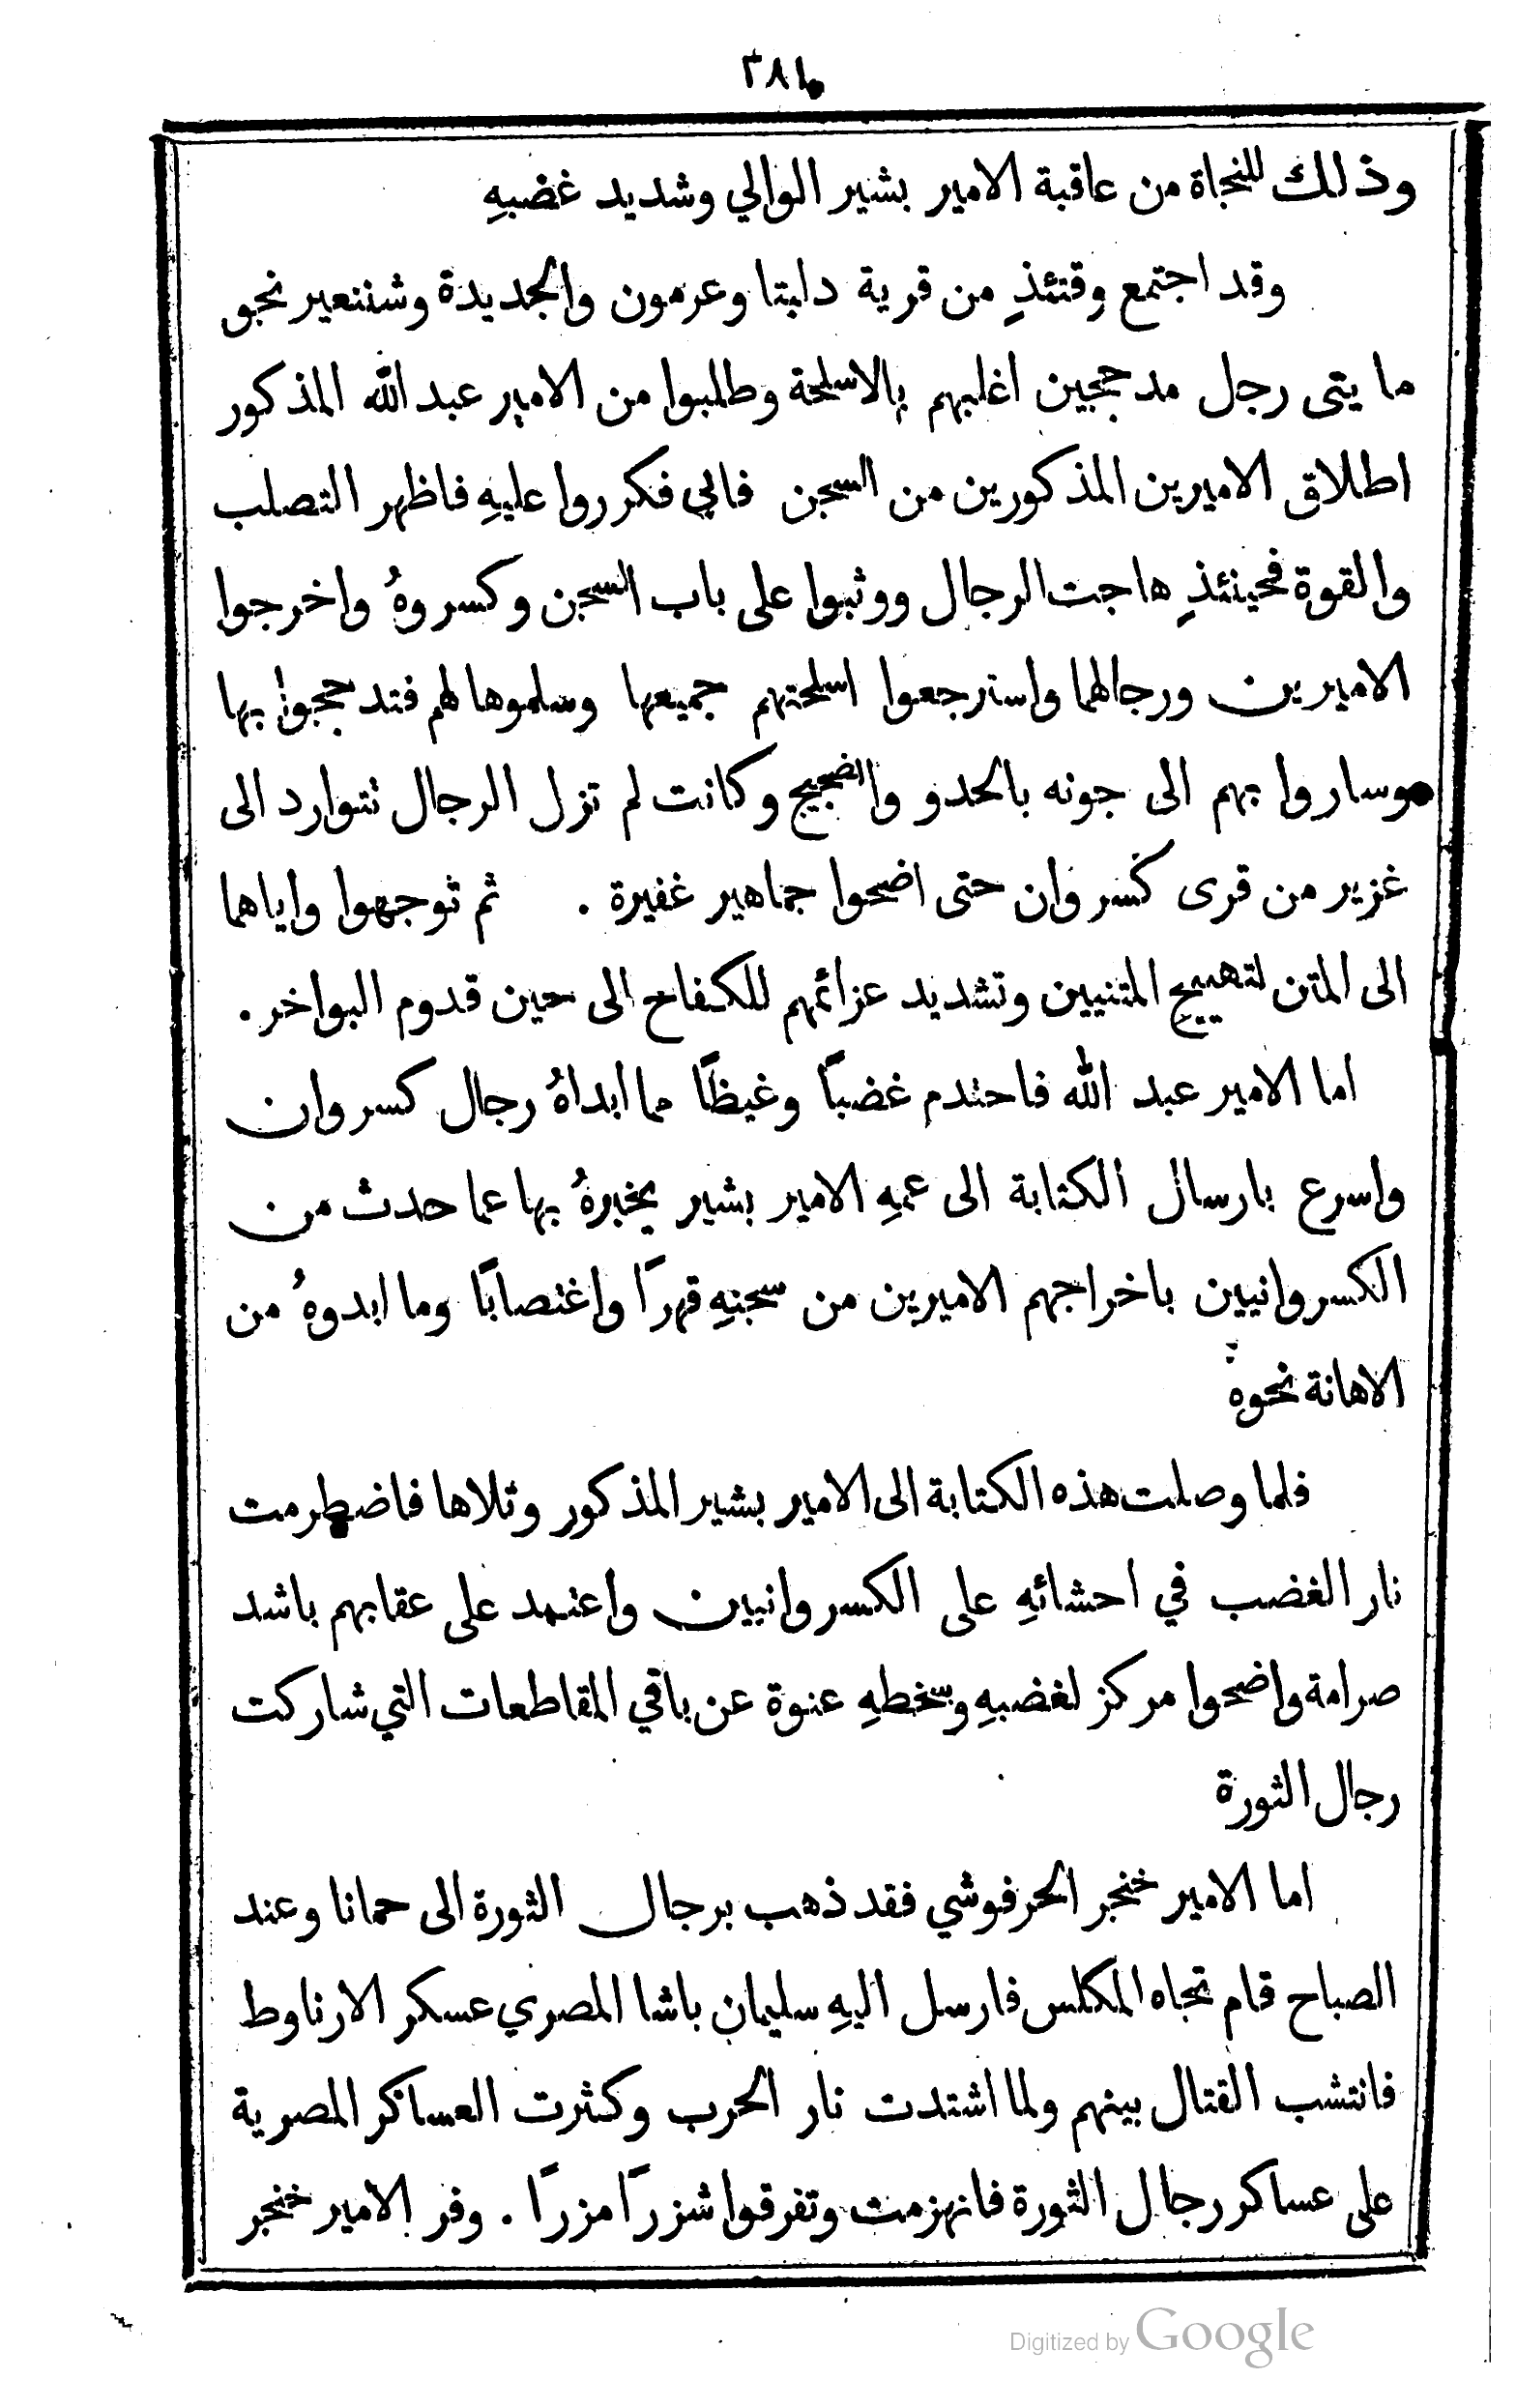 ٣٨١
وذلك للنجاة من عاقبة الامير بشير الوالي وشديد غضبهِ
وقد اجتمع وقتئذٍ من قرية دلبتا وعرمون والجديدة وشننعير نحو
ما يتى رجل مدججين اغلبهم بالاسلحة وطلبوا من الامير عبد الله المذكور
اطلاق الاميرين المذكورين من السجن فابى فكرروا عليهِ فاظهر التصلب
والقوة فحينئذٍ هاجت الرجال ووثبوا على باب السجن وكسروهُ واخرجوا
الاميرين ورجالهما واسترجعوا اسلحتهم جميعها وسلموها لهم فتدججوا بها
وساروا بهم الى جونه بالحدو والضجيج وكانت لم تزل الرجال تتوارد الى
غزير من قرى كسروان حتى اضحوا جماهير غفيرة . ثم توجهوا واياهما
الى المتن لتهييج المتنيين وتشديد عزائمهم للكفاح الى حين قدوم البواخر .
اما الامير عبد الله فاحتدم غضبًا وغيظًا مما ابداهُ رجال كسروان
واسرع بارسال الكتابة الى عمهِ الامير بشير يخبرهُ بها عما حدث من
الكسروانيين باخراجهم الاميرين من سجنهِ قهرًا واغتصابًا وما ابدوهُ من
الاهانة نحوهُ
فلما وصلت هذه الكتابة الى الامير بشير المذكور وتلاها فاضطرمت
نار الغضب في احشائهِ على الكسروانيين واعتمد على عقابهم باشد
صرامة واضحوا مركز لغضبهِ وسخطهِ عنوة عن باقي المقاطعات التي شاركت
رجال الثورة
اما الامير خنجر الحرفوشي فقد ذهب برجال الثورة الى حمانا وعند
الصباح قام تجاه المكلس فارسل اليهِ سليمان باشا المصري عسكر الارناوط
فانتشب القتال بينهم ولما اشتدت نار الحرب وكثرت العساكر المصرية
على عساكر رجال الثورة فانهزمت وتفرقوا شزرًا مزرًا . وفر الامير خنجر
Digitized by Google